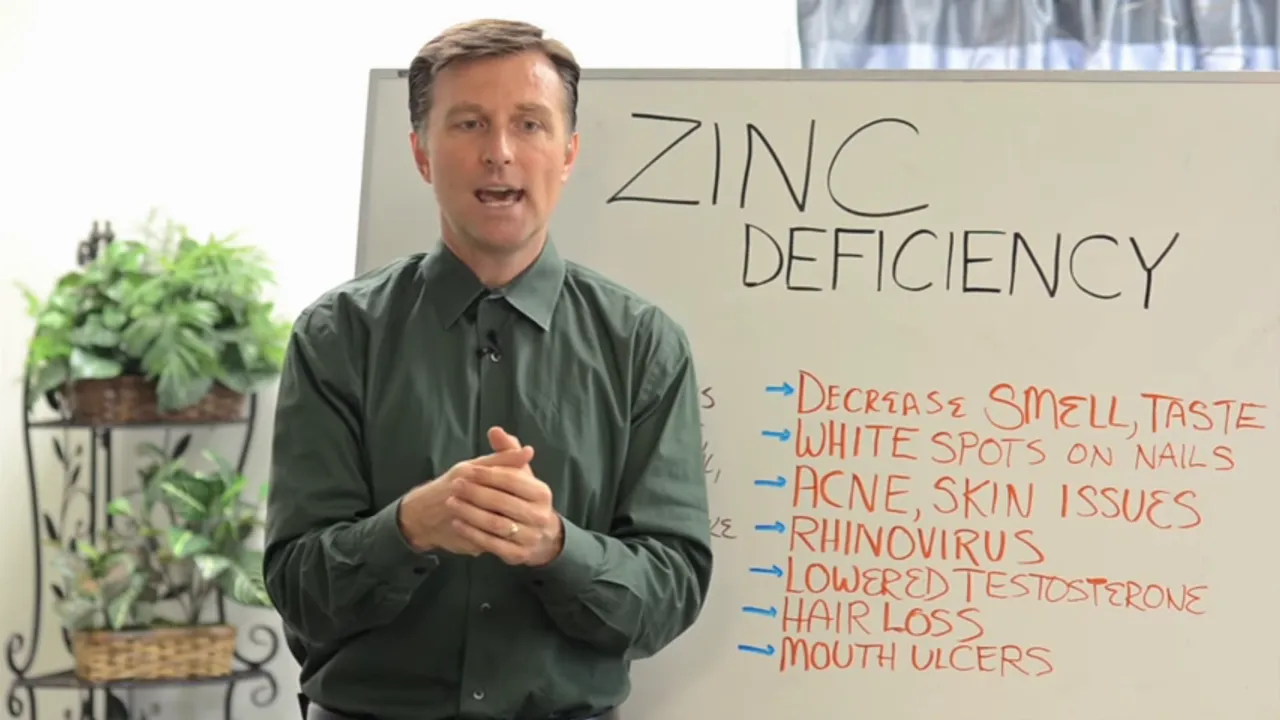 ZINC
DEFICIENCY
→DECREASE SMELL, TASTE
→WHITE SPOTS ON NAILS
→ACNE, SKIN ISSUES
→RHINOVIRUS
→LOWERED TESTOSTERONE
→HAIR LOSS
→MOUTH ULCERS